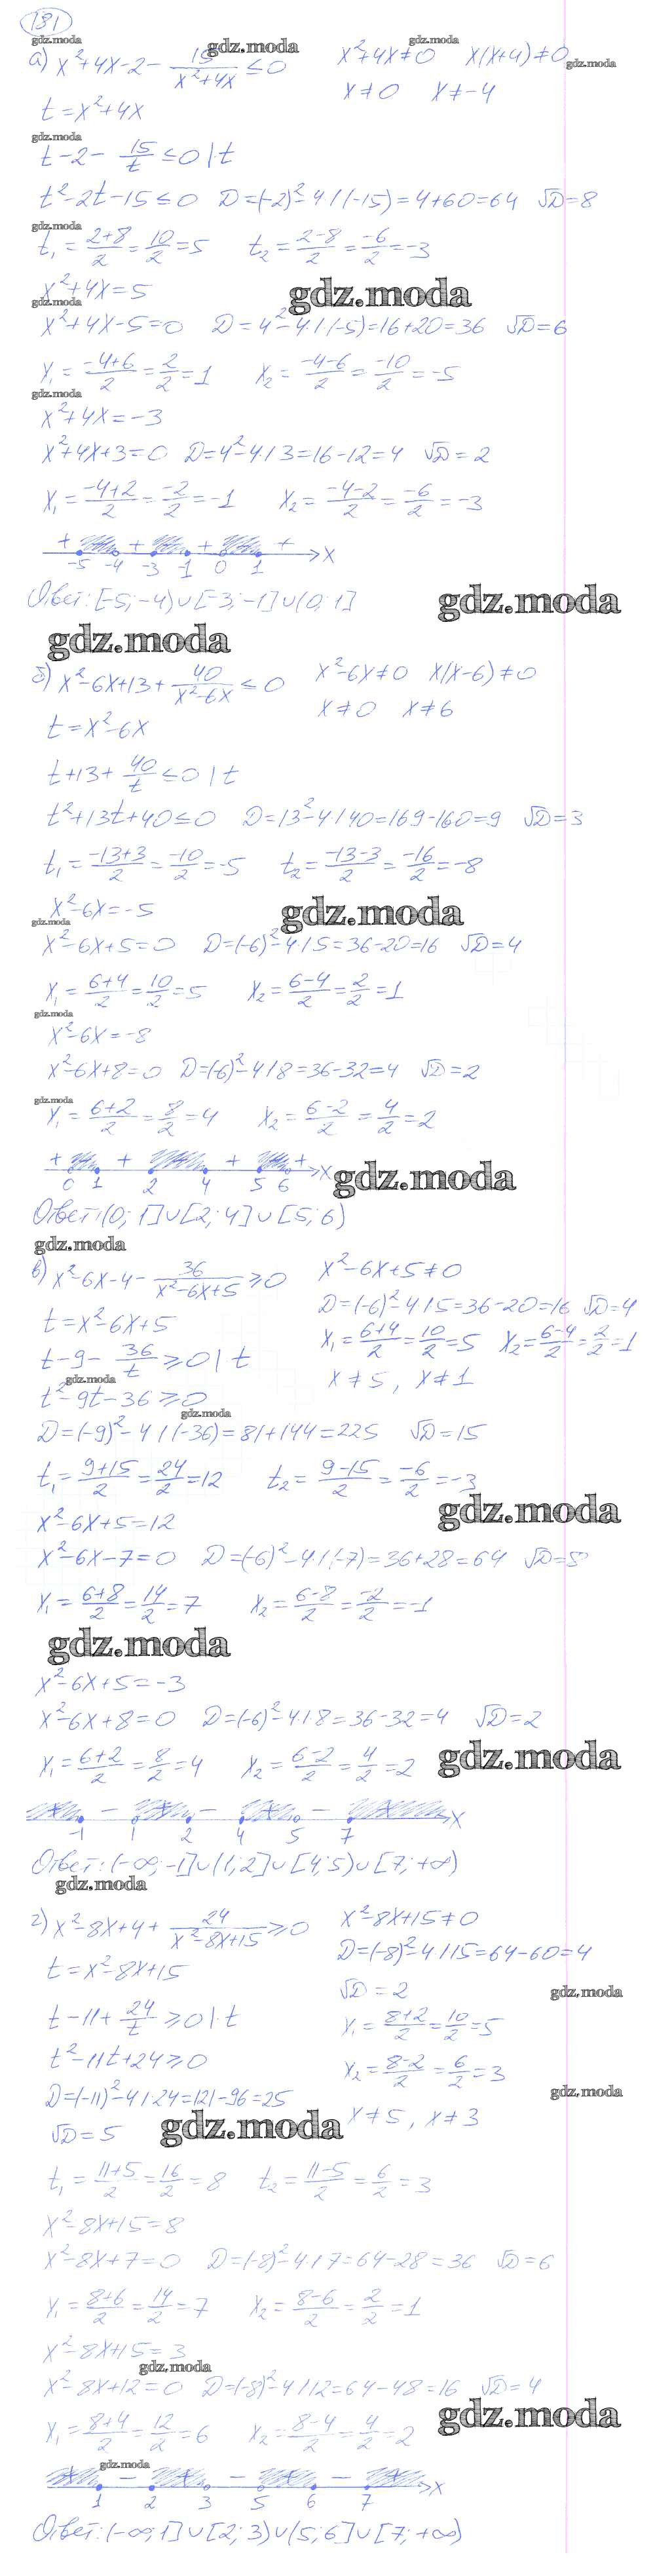 181
gdz.moda gdz.moda gdz.moda
а) x²+4x-2- 15/(x²+4x) ≤0 x²+4x≠0 x(x+4)≠0
gdz.moda
x≠0 x≠-4
t=x²+4x
gdz.moda
t-2- 15/t ≤0 |·t
t²-2t-15≤0 D=(-2)²-4·1·(-15)=4+60=64 √D=8
gdz.moda
t₁= (2+8)/2 = 10/2 =5 t₂= (2-8)/2 = -6/2 =-3
x²+4x=5
gdz.moda gdz.moda
x²+4x-5=0 D=4²-4·1·(-5)=16+20=36 √D=6
x₁= (-4+6)/2 = 2/2 =1 x₂= (-4-6)/2 = -10/2 =-5
gdz.moda
x²+4x=-3
x²+4x+3=0 D=4²-4·1·3=16-12=4 √D=2
x₁= (-4+2)/2 = -2/2 =-1 x₂= (-4-2)/2 = -6/2 =-3
+ + + + x
-5 -4 -3 -1 0 1
Ответ: [-5;-4)∪[-3;-1]∪(0;1]
gdz.moda
gdz.moda
б) x²-6x+13+ 40/(x²-6x) ≤0 x²-6x≠0 x(x-6)≠0
x≠0 x≠6
t=x²-6x
t+13+ 40/t ≤0 |·t
t²+13t+40≤0 D=13²-4·1·40=169-160=9 √D=3
t₁= (-13+3)/2 = -10/2 =-5 t₂= (-13-3)/2 = -16/2 =-8
x²-6x=-5
gdz.moda gdz.moda
x²-6x+5=0 D=(-6)²-4·1·5=36-20=16 √D=4
x₁= (6+4)/2 = 10/2 =5 x₂= (6-4)/2 = 2/2 =1
gdz.moda
x²-6x=-8
x²-6x+8=0 D=(-6)²-4·1·8=36-32=4 √D=2
gdz.moda
x₁= (6+2)/2 = 8/2 =4 x₂= (6-2)/2 = 4/2 =2
+ + + + x
0 1 2 4 5 6
gdz.moda
Ответ: (0;1]∪[2;4]∪[5;6)
gdz.moda
в) x²-6x-4- 36/(x²-6x+5) ≥0 x²-6x+5≠0
D=(-6)²-4·1·5=36-20=16 √D=4
t=x²-6x+5
x₁= (6+4)/2 = 10/2 =5 x₂= (6-4)/2 = 2/2 =1
t-9- 36/t ≥0 |·t
gdz.moda
x≠5, x≠1
t²-9t-36≥0
gdz.moda
D=(-9)²-4·1·(-36)=81+144=225 √D=15
t₁= (9+15)/2 = 24/2 =12 t₂= (9-15)/2 = -6/2 =-3
gdz.moda
x²-6x+5=12
x²-6x-7=0 D=(-6)²-4·1·(-7)=36+28=64 √D=8
x₁= (6+8)/2 = 14/2 =7 x₂= (6-8)/2 = -2/2 =-1
gdz.moda
x²-6x+5=-3
x²-6x+8=0 D=(-6)²-4·1·8=36-32=4 √D=2
x₁= (6+2)/2 = 8/2 =4 x₂= (6-2)/2 = 4/2 =2
gdz.moda
+ - + - + - + x
-1 1 2 4 5 7
Ответ: (-∞;-1]∪(1;2]∪[4;5)∪[7;+∞)
gdz.moda
г) x²-8x+4+ 24/(x²-8x+15) ≥0 x²-8x+15≠0
D=(-8)²-4·1·15=64-60=4
t=x²-8x+15
√D=2
gdz.moda
t-11+ 24/t ≥0 |·t
x₁= (8+2)/2 = 10/2 =5
t²-11t+24≥0
x₂= (8-2)/2 = 6/2 =3
D=(-11)²-4·1·24=121-96=25
gdz.moda
√D=5
gdz.moda
x≠5, x≠3
t₁= (11+5)/2 = 16/2 =8 t₂= (11-5)/2 = 6/2 =3
x²-8x+15=8
x²-8x+7=0 D=(-8)²-4·1·7=64-28=36 √D=6
x₁= (8+6)/2 = 14/2 =7 x₂= (8-6)/2 = 2/2 =1
x²-8x+15=3
gdz.moda
x²-8x+12=0 D=(-8)²-4·1·12=64-48=16 √D=4
gdz.moda
x₁= (8+4)/2 = 12/2 =6 x₂= (8-4)/2 = 4/2 =2
gdz.moda
+ - + - + - + x
1 2 3 5 6 7
Ответ: (-∞;1]∪[2;3)∪(5;6]∪[7;+∞)